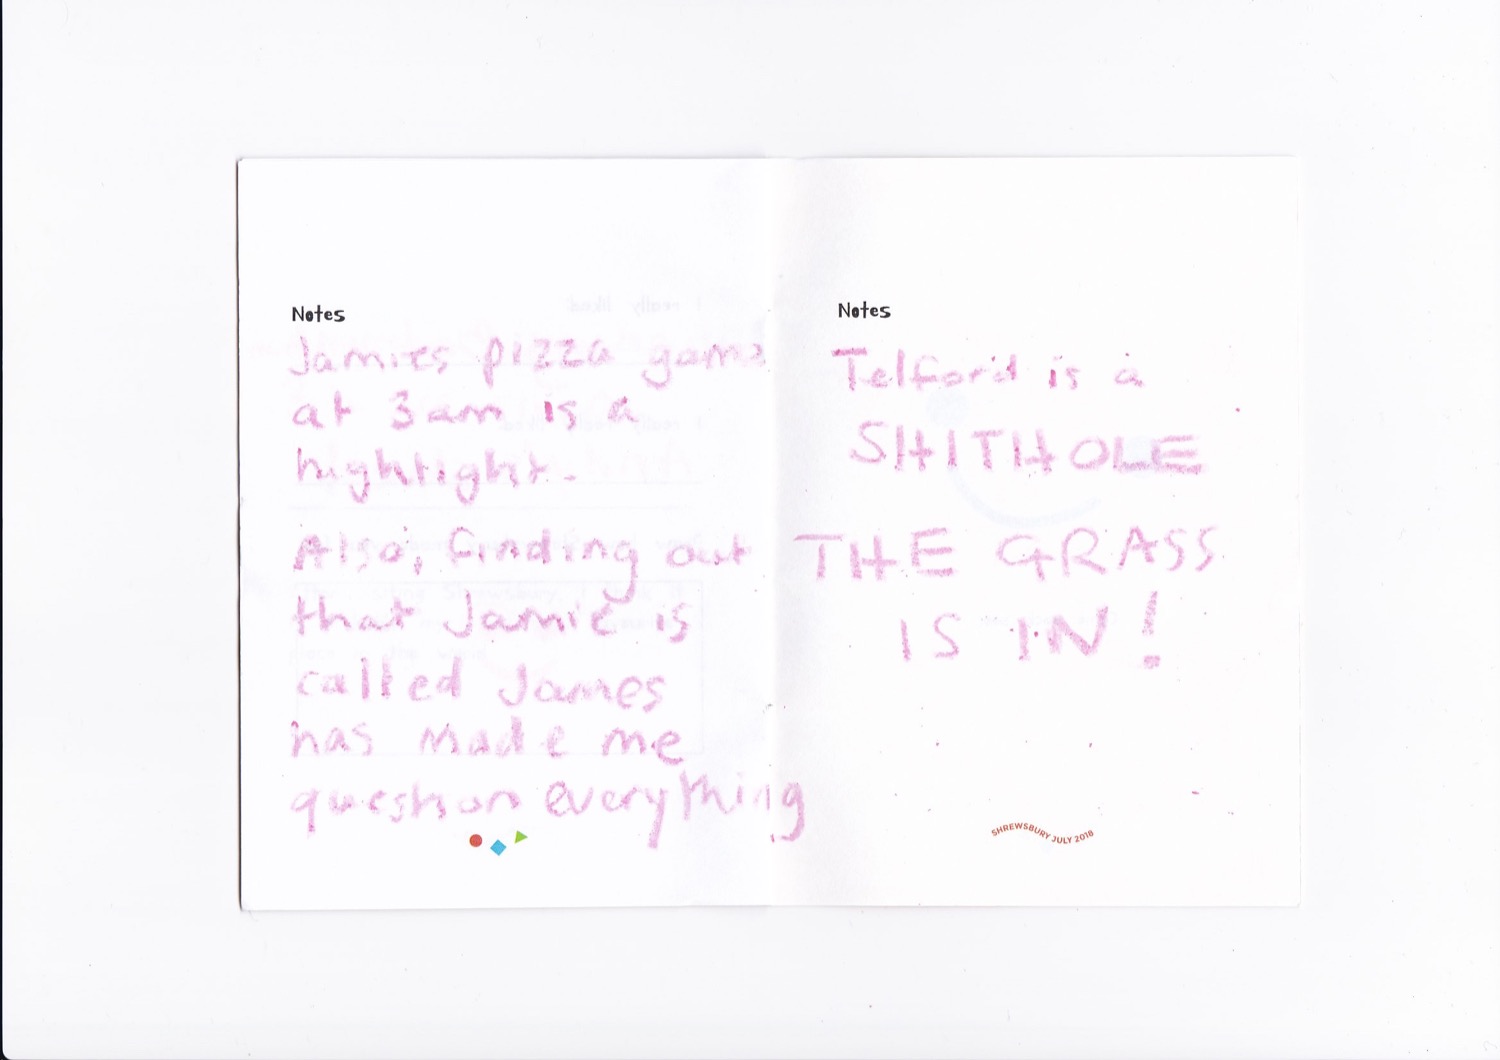 Notes
Jamies pizza game
at 3am is a
highlight.
Also, finding out
that Jamie is
called James
has made me
question everything
Notes
Telford is a
SHITHOLE
THE GRASS
IS IN!
SHREWSBURY JULY 2018